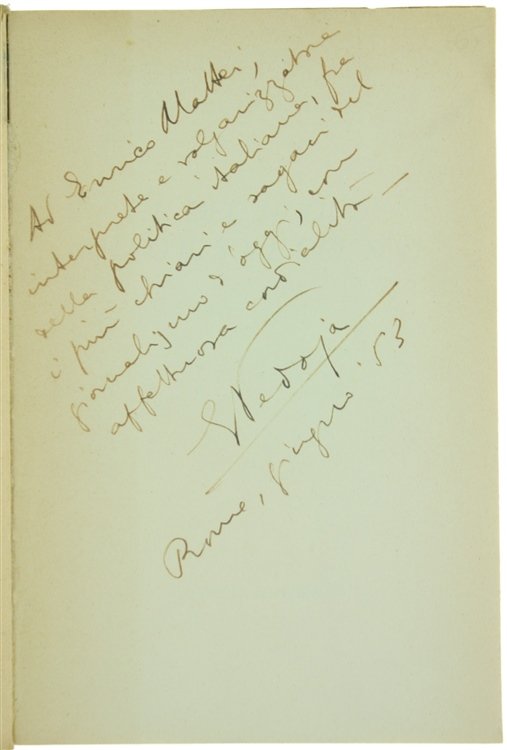 Ad Enrico Mattei,
interprete e volganizzatore
della politica italiana, fra
i più chiari e sagaci del
giornalismo d'oggi, con
affettuosa cordialità
Roma, giugno '53